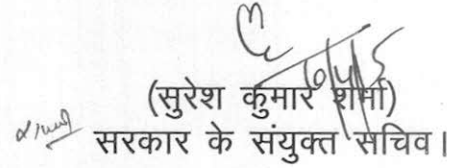 (सुरेश कुमार शर्मा)
सरकार के संयुक्त सचिव।